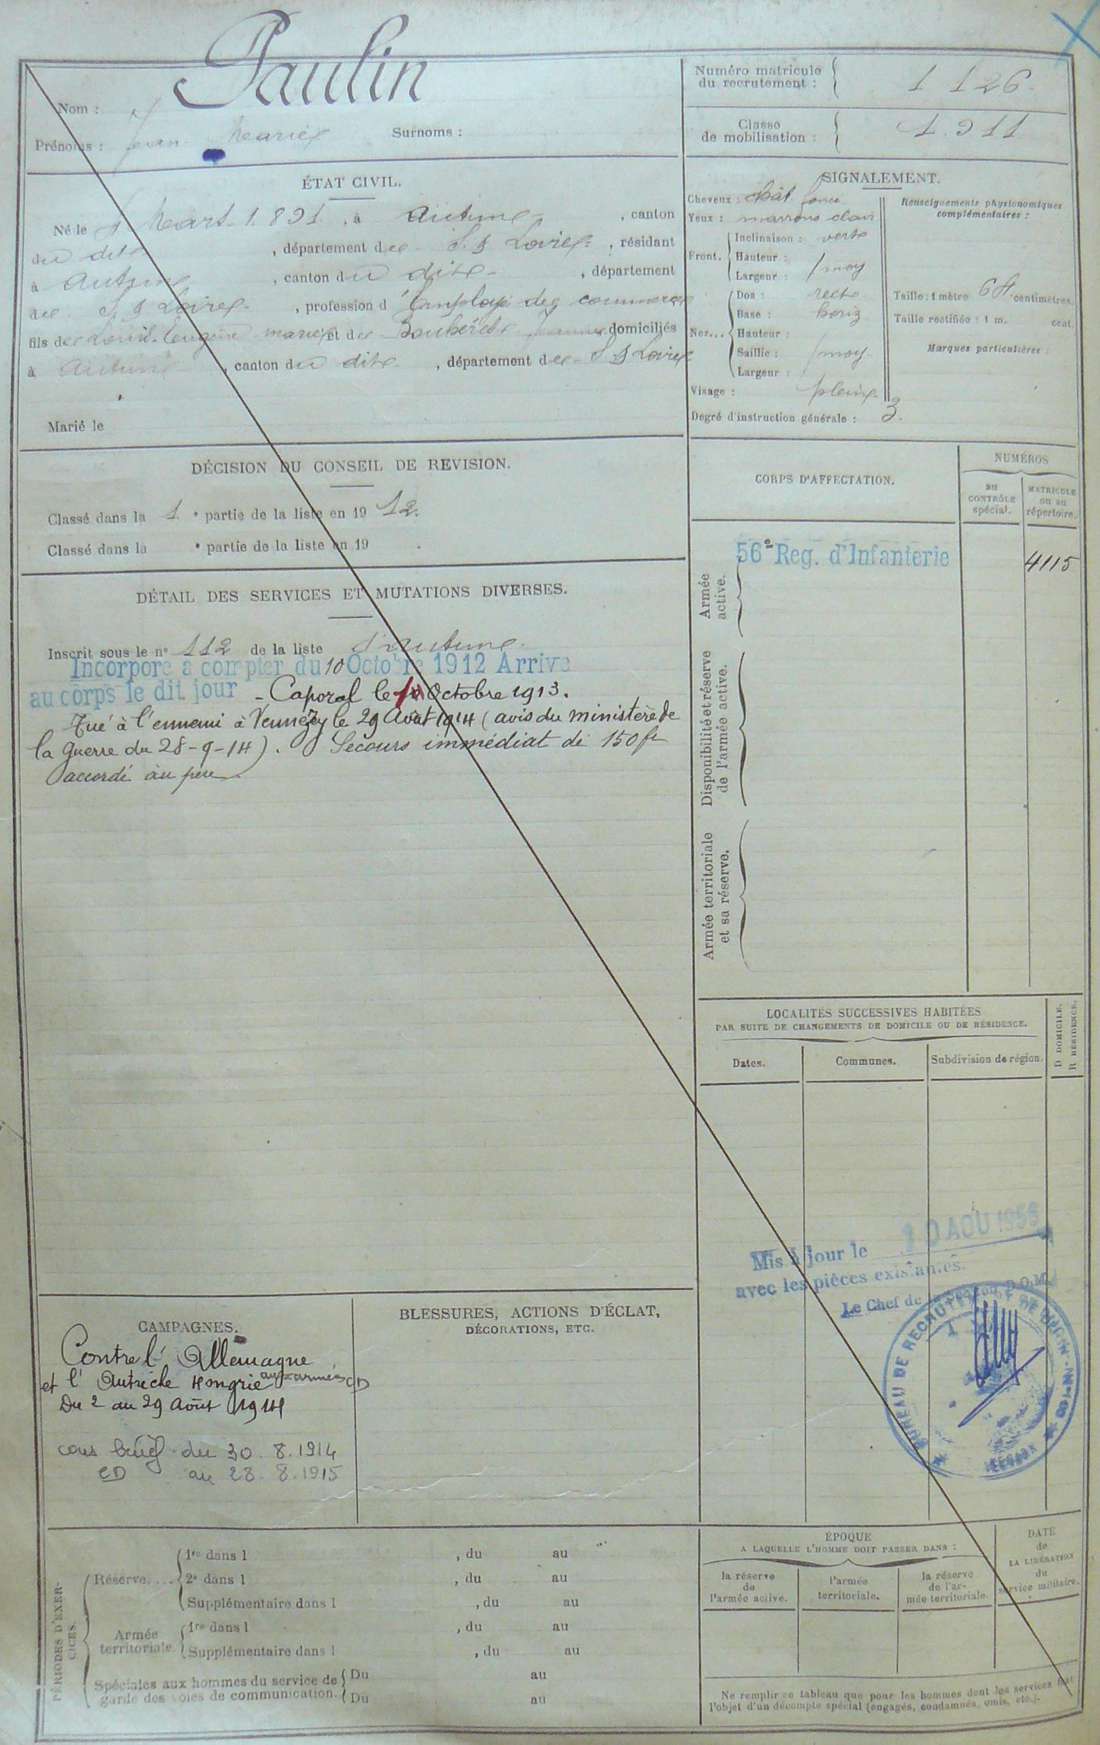 Paulin
Nom :
Prénoms : Jean Marie Surnoms :
Numéro matricule du recrutement : 1126
Classe de mobilisation : 1911
ÉTAT CIVIL.
Né le Mars 1891, à Autun, canton
du dit, département de S. & Loire, résidant
à Autun, canton du dit, département
de S. & Loire, profession d'Employé de commerce
fils de Louis Eugène Marie et de domiciliés
à Autun, canton du dit, département de S & Loire
Marié le
SIGNALEMENT.
Cheveux : chât foncé
Yeux : marrons clair
Front. Inclinaison : verte
Hauteur :
Largeur : moy
Nez... Dos : recte
Base : horiz
Hauteur :
Saillie : moy
Largeur :
Visage : plein
Degré d'instruction générale : 3
Renseignements physionomiques
complémentaires :
Taille : 1 mètre 64 centimètres.
Taille rectifiée : 1 m. cent.
Marques particulières :
DÉCISION DU CONSEIL DE REVISION.
Classé dans la 1 e partie de la liste en 1912
Classé dans la e partie de la liste en 19
DÉTAIL DES SERVICES ET MUTATIONS DIVERSES.
Inscrit sous le n° 112 de la liste d'Autun
Incorporé à compter du 10 Octobre 1912 Arrivé
au corps le dit jour - Caporal le Octobre 1913.
Tué à l'ennemi à Vennezey le 29 Août 1914 (avis du ministère de
la guerre du 28-9-14). Secours immédiat de 150 fr
accordé au père
CORPS D'AFFECTATION.
NUMÉROS
DU CONTRÔLE spécial.
MATRICULE ou au répertoire.
Armée active.
56e Reg. d'Infanterie 4115
Disponibilité et réserve de l'armée active.
Armée territoriale et sa réserve.
LOCALITÉS SUCCESSIVES HABITÉES
PAR SUITE DE CHANGEMENTS DE DOMICILE OU DE RÉSIDENCE.
Dates. Communes. Subdivision de région. D DOMICILE. R RÉSIDENCE.
Mis à jour le 10 AOU
avec les pièces existantes.
Le Chef de
BUREAU DE RECRUTEMENT DE
CAMPAGNES.
Contre l'Allemagne
et l'Autriche Hongrie aux armées CD
Du 2 au 29 Août 1914
du 30.8.1914
CD au 28.8.1915
BLESSURES, ACTIONS D'ÉCLAT,
DÉCORATIONS, ETC.
PÉRIODES D'EXERCICES.
Réserve. 1re dans l , du au
2e dans l , du au
Supplémentaire dans l , du au
Armée territoriale 1re dans l , du au
Supplémentaire dans l , du au
Spéciales aux hommes du service de garde des voies de communication. Du au
Du au
ÉPOQUE
A LAQUELLE L'HOMME DOIT PASSER DANS :
la réserve de l'armée active.
l'armée territoriale.
la réserve de l'armée territoriale.
DATE de LA LIBÉRATION du service militaire.
Ne remplir ce tableau que pour les hommes dont les services font
l'objet d'un décompte spécial (engagés, condamnés, omis, etc.).